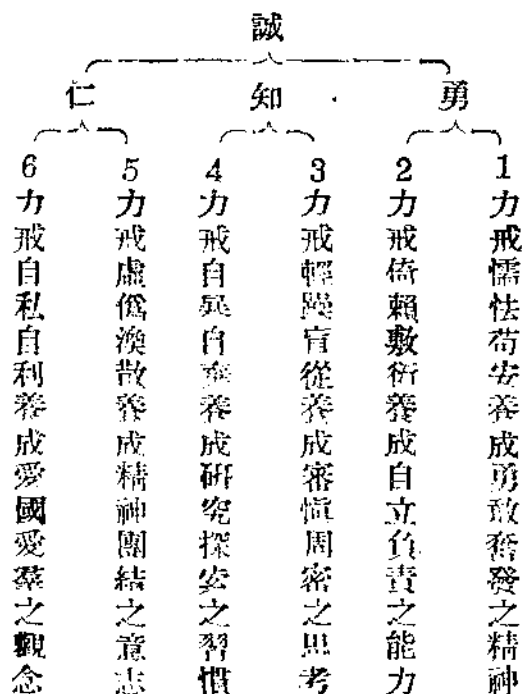 誠
勇
知
仁
1力戒懦怯苟安養成勇敢奮發之精神
2力戒倚賴敷衍養成自立負責之能力
3力戒輕躁盲從養成審慎周密之思考
4力戒自暴自棄養成研究探安之習慣
5力戒虛僞渙散養成精神團結之意志
6力戒自私自利養成愛國愛羣之觀念